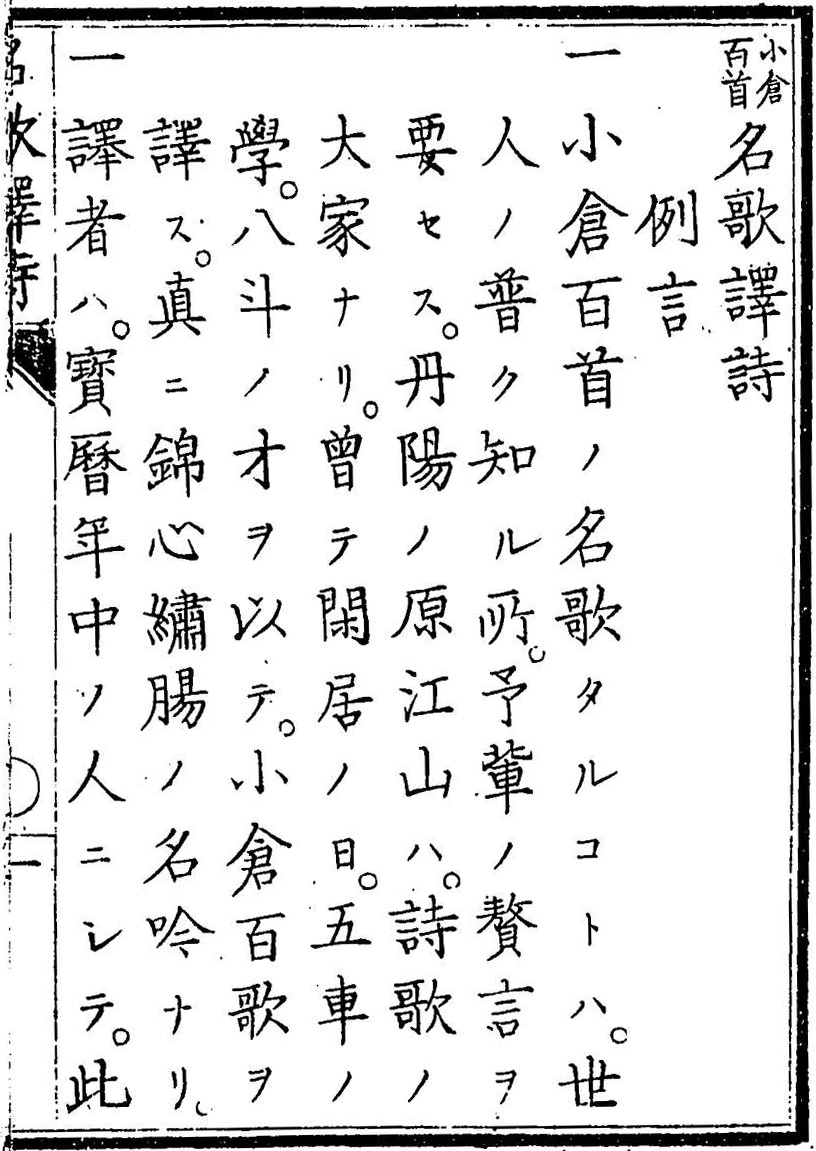 小倉百首名歌譯詩
例言
一小倉百首ノ名歌タルコトハ。世
人ノ普ク知ル所。予輩ノ贅言ヲ
要セス。丹陽ノ原江山ハ。詩歌ノ
大家ナリ。曾テ閑居ノ日。五車ノ
學。八斗ノオヲ以テ。小倉百歌ヲ
譯ス。真ニ錦心繡腸ノ名吟ナリ。
一譯者ハ。寶曆年中ノ人ニシテ。此
名歌譯詩
一